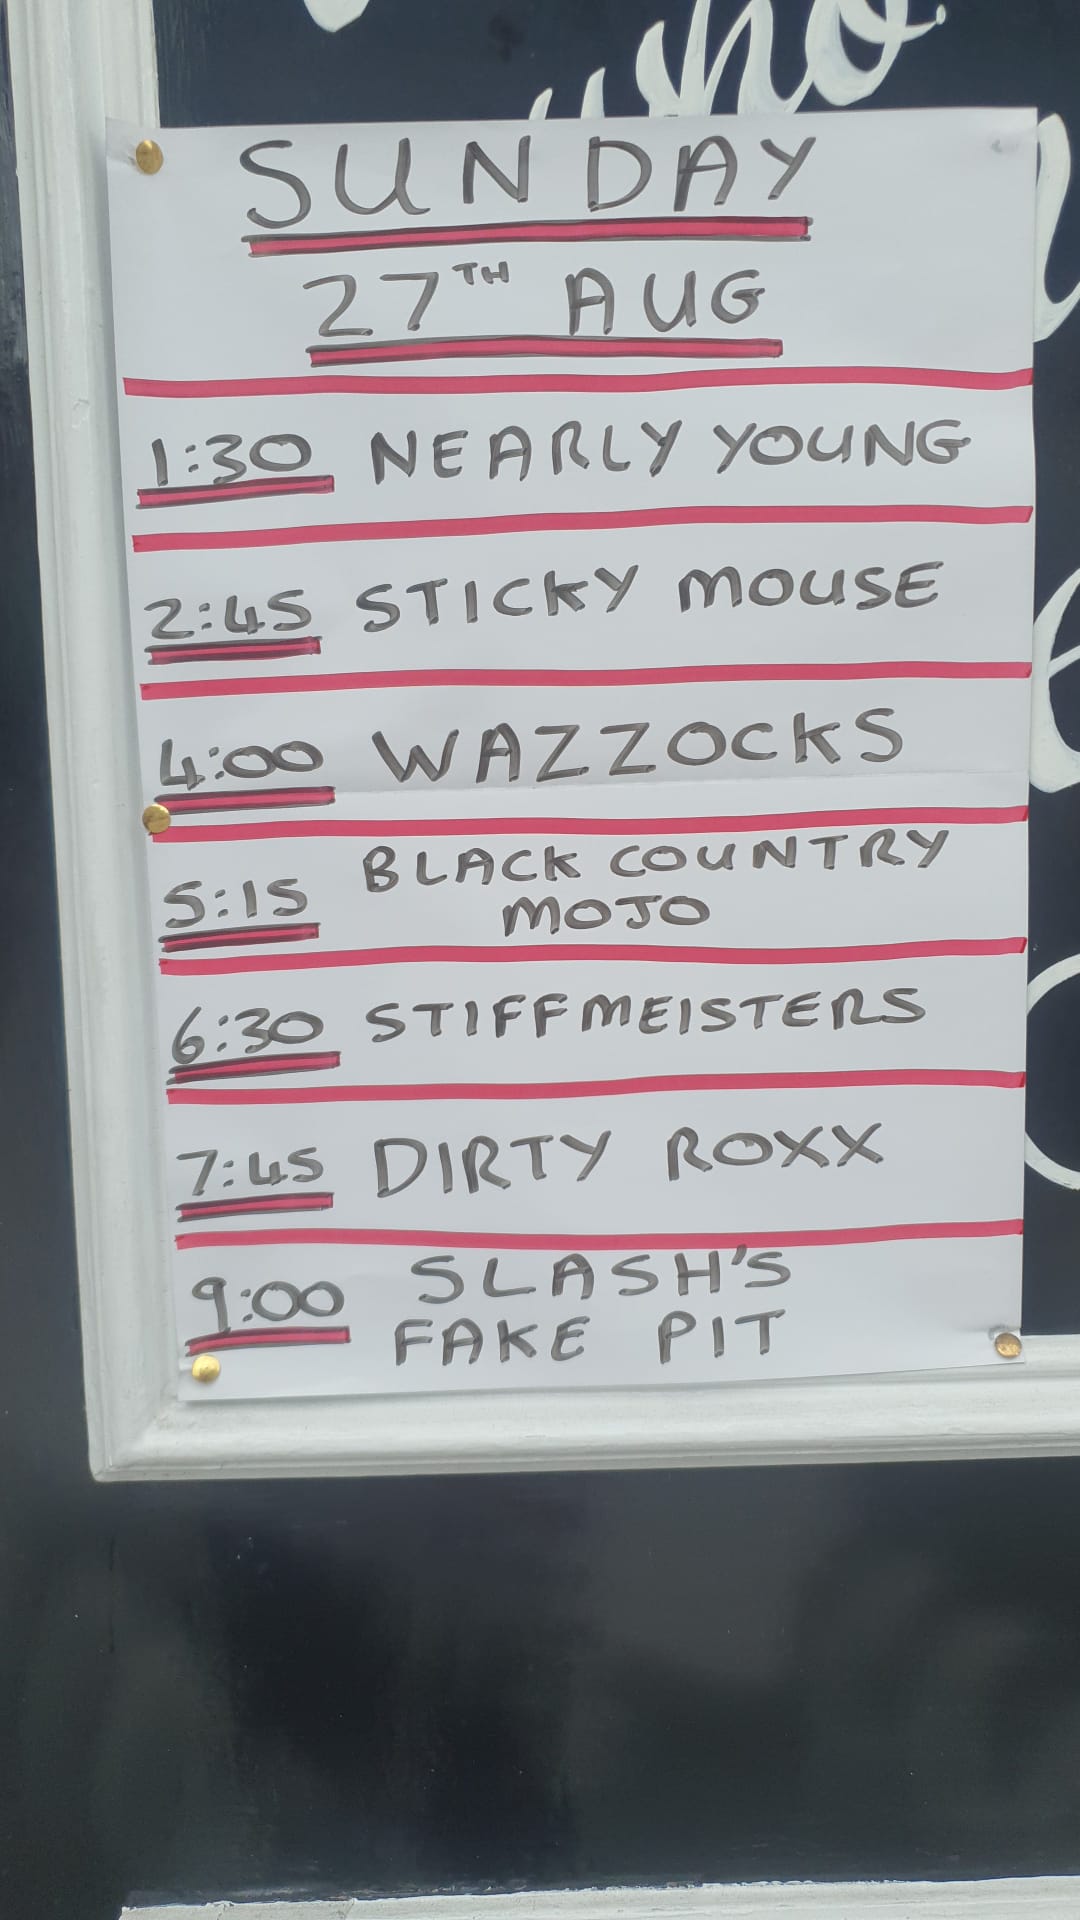 who
SUNDAY
27TH AUG
1:30 NEARLY YOUNG
2:45 STICKY MOUSE
4:00 WAZZOCKS
5:15 BLACK COUNTRY
MOJO
6:30 STIFFMEISTERS
7:45 DIRTY ROXX
9:00 SLASH'S
FAKE PIT